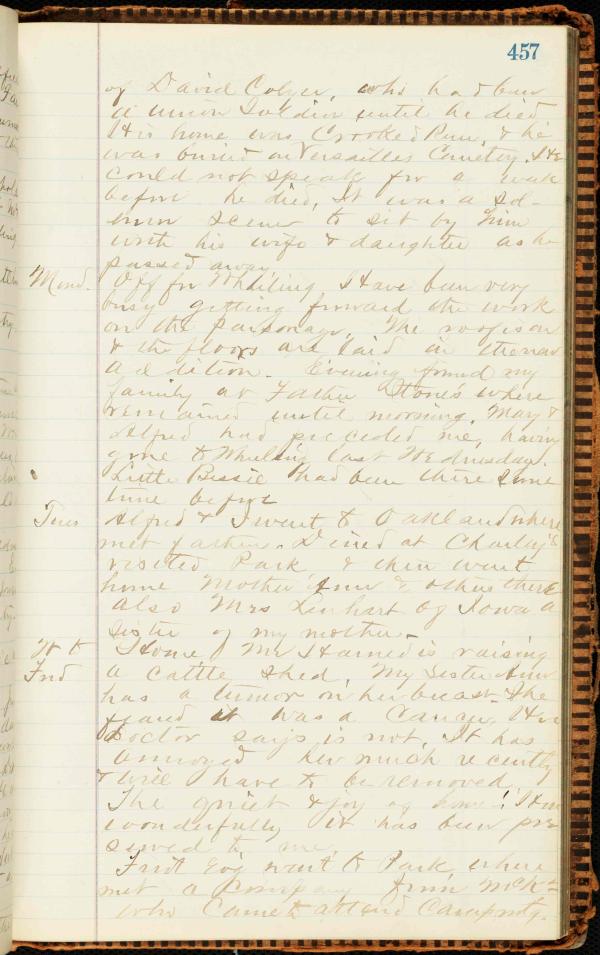 457
of David Colyer, who had been
a union Soldier until he died
His home was Crooked Run, & he
was buried in Versailles Cemetery. He
could not speak for a week
before he died. It was a sol-
emn scene to sit by him
with his wife & daughter as he
passed away.
Mond. Off for Wheeling. Have been very
busy getting forward the work
on the parsonage. The roof is on
& the floors are laid in the new
addition. Evening found my
family at Father Stone's where
remained until morning. Mary &
Alfred had preceded me, having
gone to Wheeling last Wednesday.
Little Bessie had been there some
time before
Tues Alfred & I went to Oakland where
met father. Dined at Charley's
visited Park & then went
home Mother Ann & others there
also Mrs Linhart of Iowa a
sister of my mother.
W & Home. Mr Harned is raising
Frid a cattle shed. My sister Ann
has a tumor on her breast. She
feared it was a Cancer. Her
Doctor says is not. It has
annoyed her much recently
& will have to be removed.
The quiet & joy of home! How
wonderfully it has been pre
served to me.
Frid Ev'g went to Park where
met a company from McK
who came to attend Campmtg.